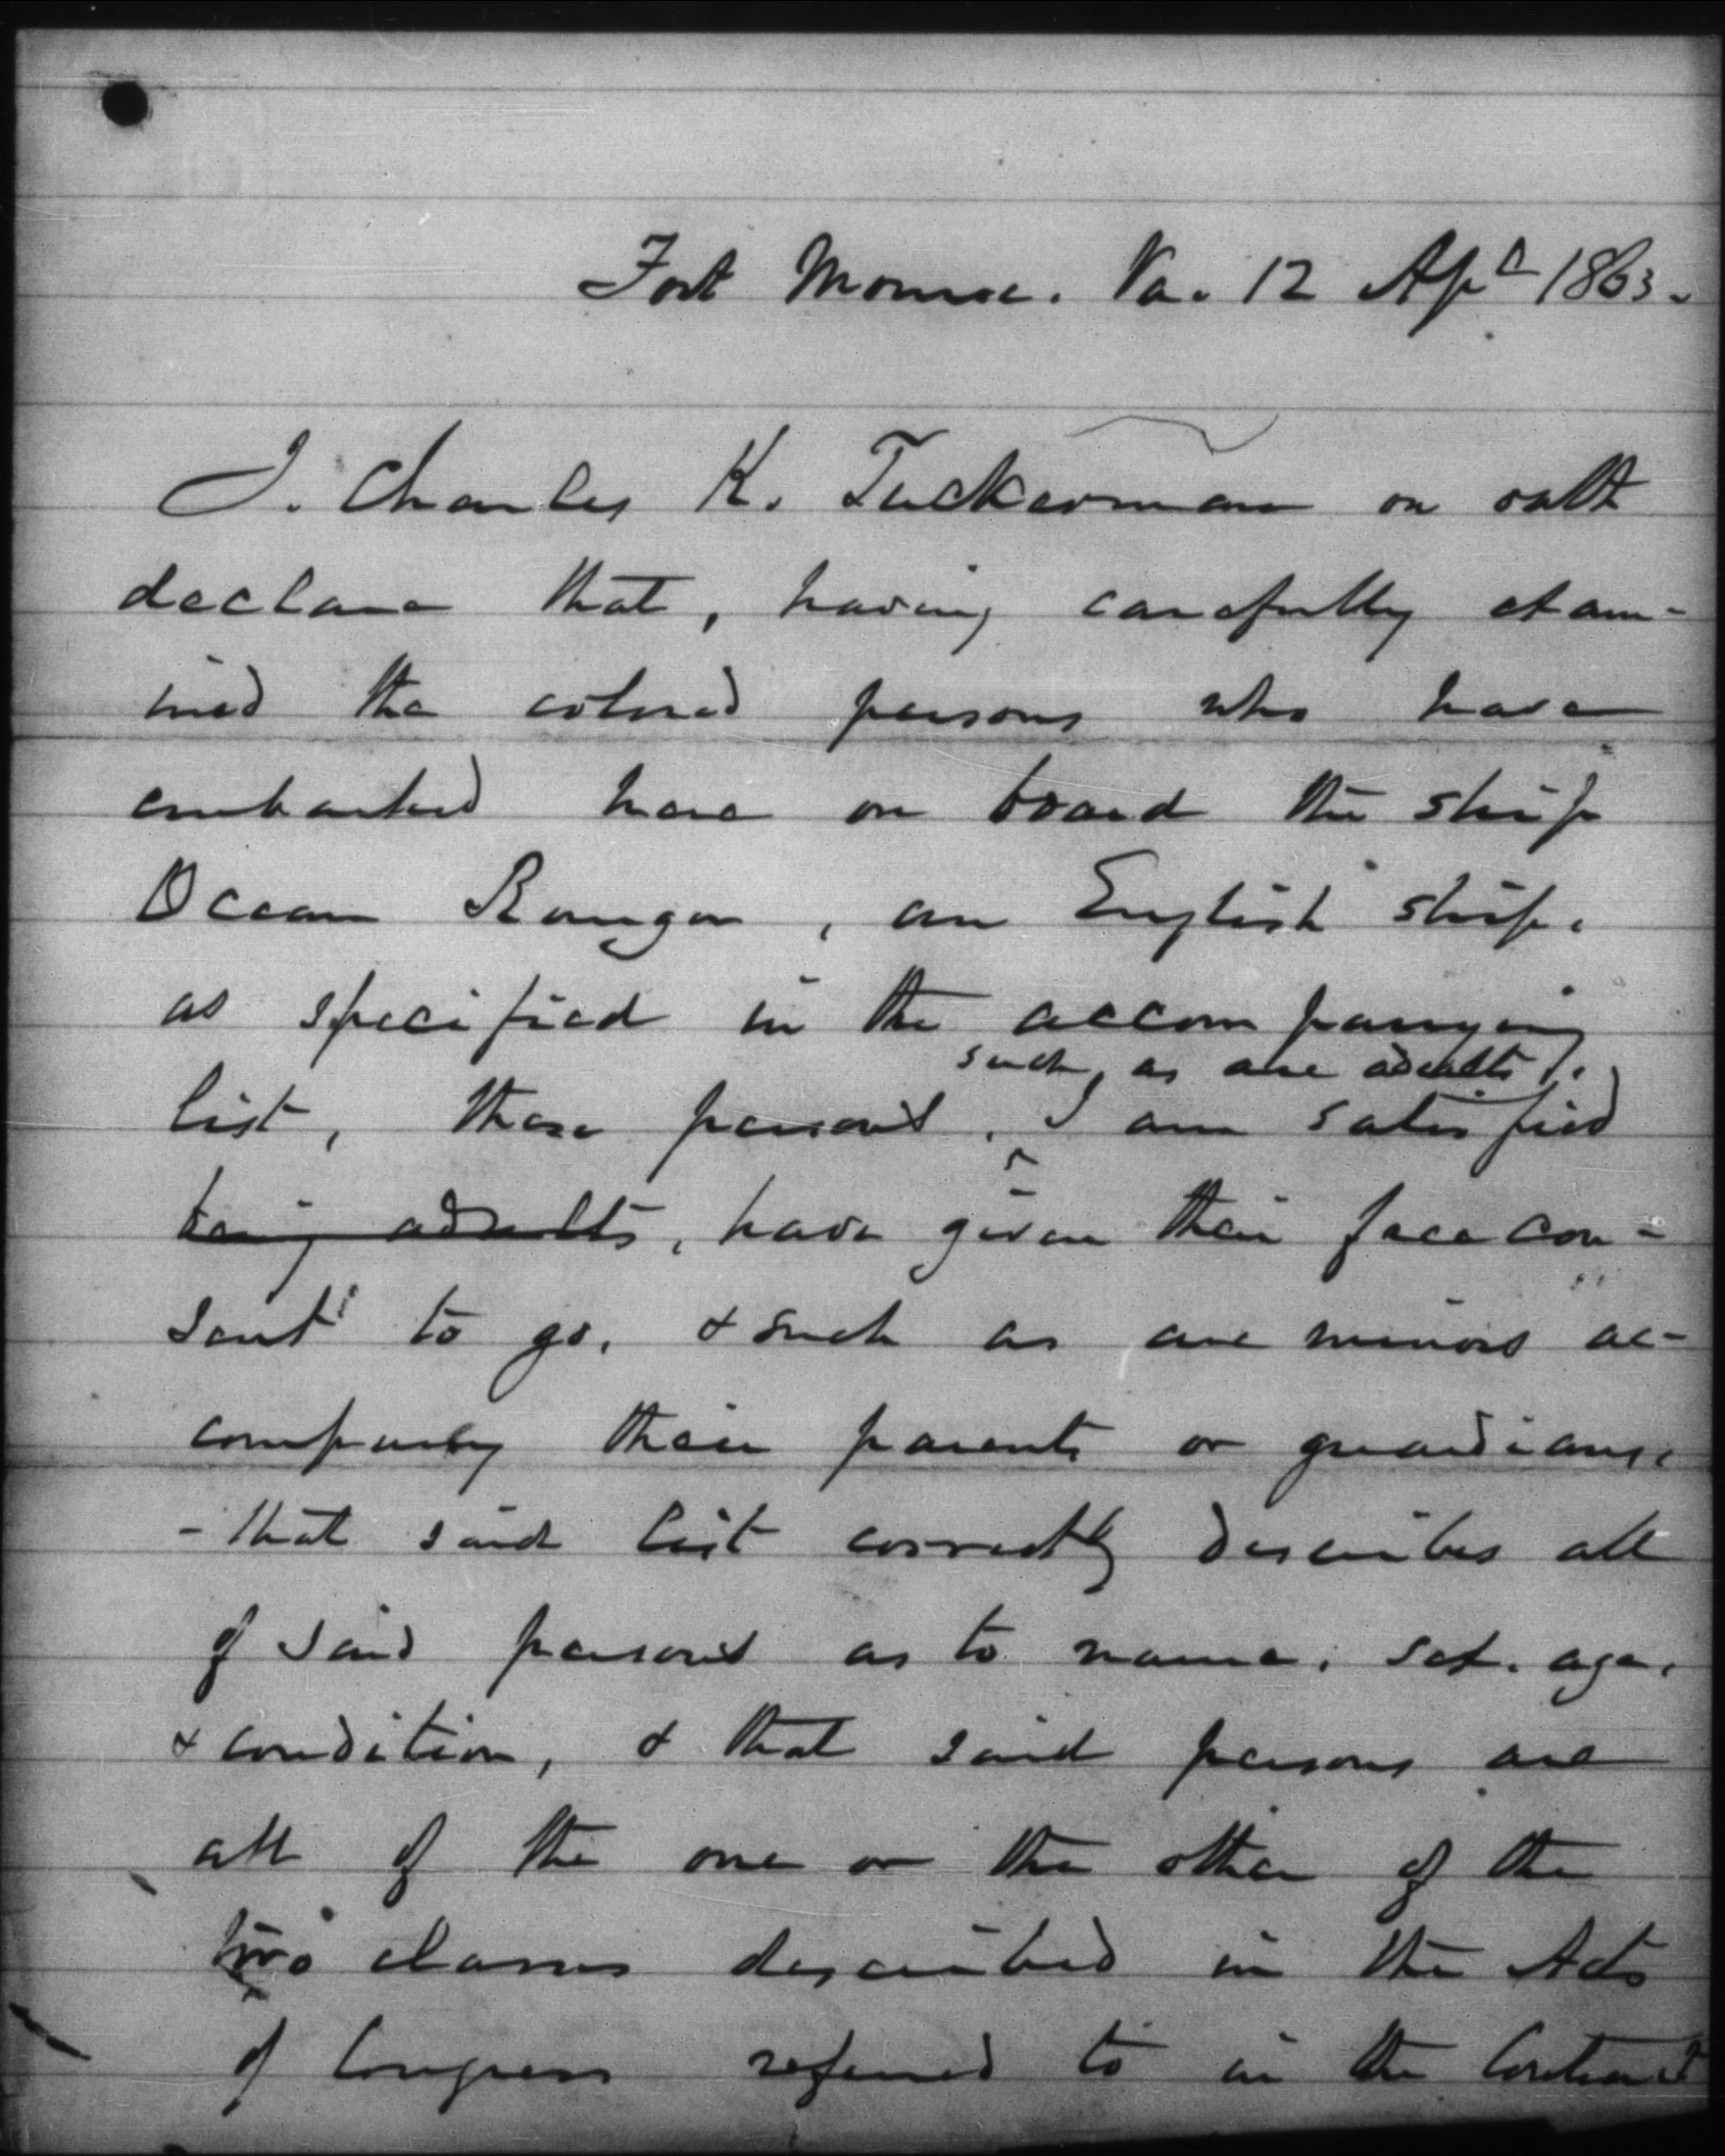 Fort Monroe. Va. 12 Apl 1863.
I. Charles K. Tuckerman on oath
declare that, having carefully exam-
ined the colored persons who have
embarked here on board the ship
Ocean Ranger, an English ship.
as specified in the accompanying
such, as are adults).
list, these persons, I am satisfied
being adults, have given their free con-
sent to go, & such as are minors ac-
company their parents or guardians.
- that said list correctly describes all
of said persons as to name, sex, age,
& condition, & that said persons are
all of the one or the other of the
two classes described in the Acts
of Congress referred to in the Contract